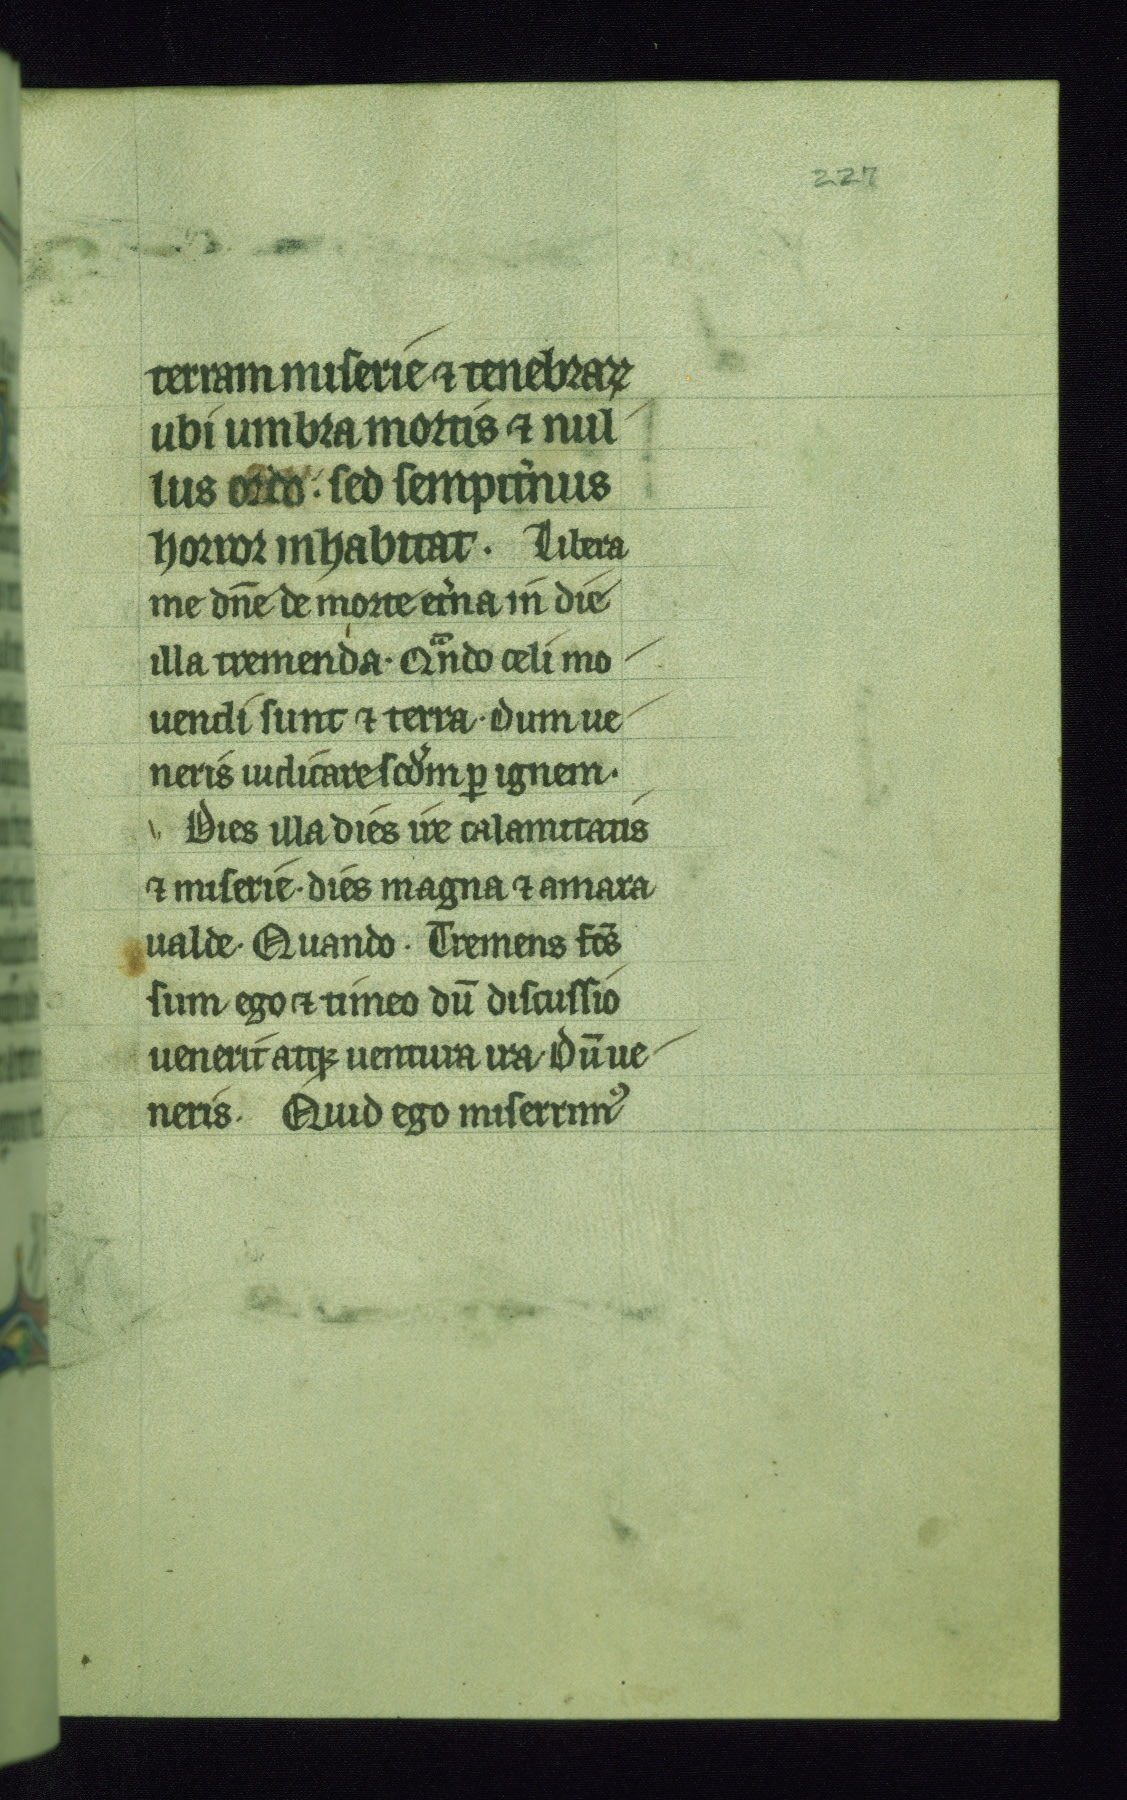 227
terram miserie ⁊ tenebraꝝ
ubi umbra mortis ⁊ nul
lus ordo . sed sempit̾nus
horror inhabitat . Libera
me dn̄e de morte et̾na in die
illa tremenda . Qn̄do celi mo
uendi sunt ⁊ terra . Dum ue
neris iudicare sc̄lm ꝑ ignem .
Dies illa dies ire calamitatis
⁊ miserie . dies magna ⁊ amara
ualde . Quando . Tremens fc̄s
sum ego ⁊ timeo dū discussio
uenerit atqꝫ uentura ira . Dū ue
neris . Quid ego miserrimꝰ